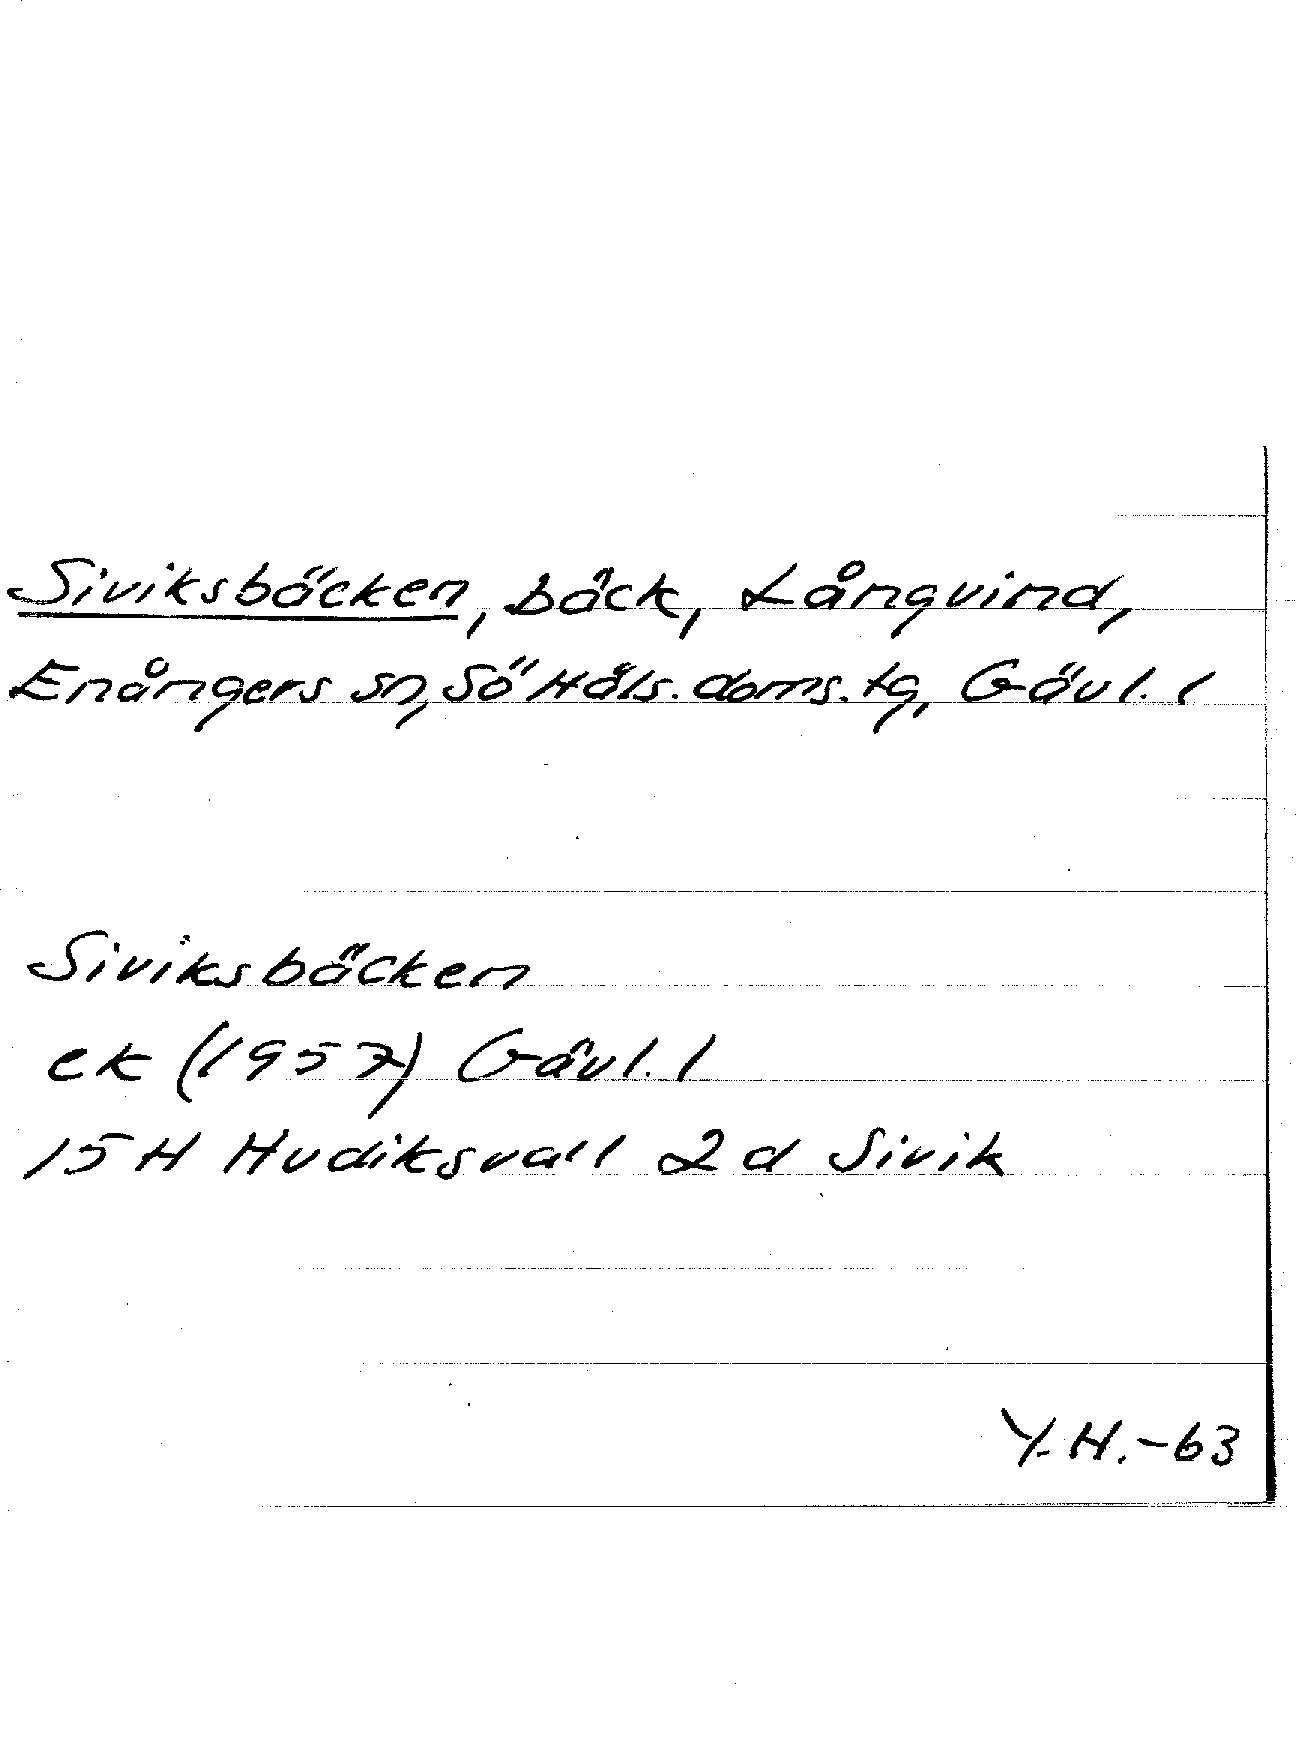 Siviksbäcken, bäck, Långvind,
Enångers sn, Sö Häls. doms. tg, Gävl. l
Siviksbäcken
ek (1957) Gävl. l
15H Hudiksvall 2d Sivik
Y.H.-63